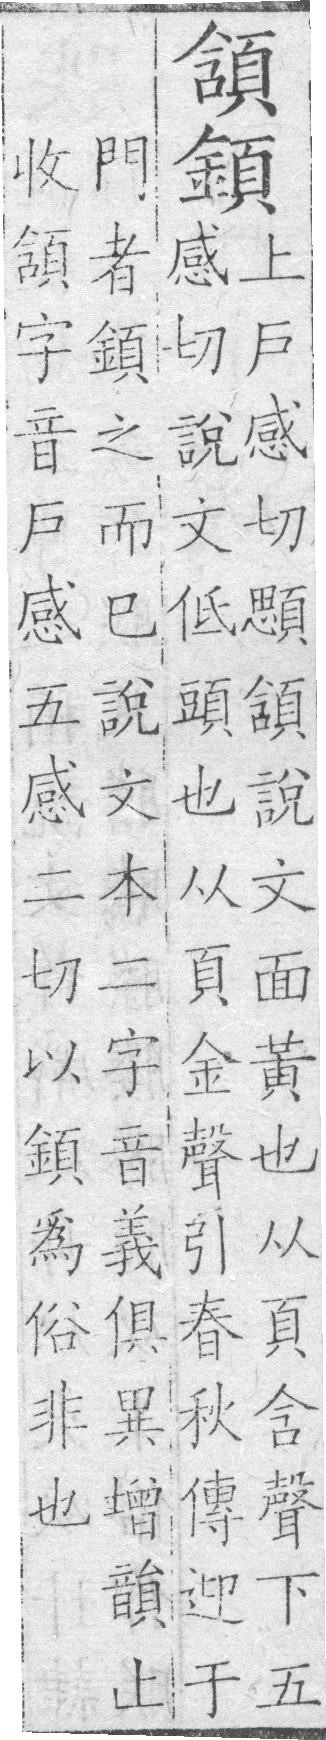 頷顉
上戶感切顋頷說文面黃也从頁含聲下五
感切說文低頭也从頁金聲引春秋傳迎于
門者顉之而已說文本二字音義俱異增韻止
收頷字音戶感五感二切以顉爲俗非也